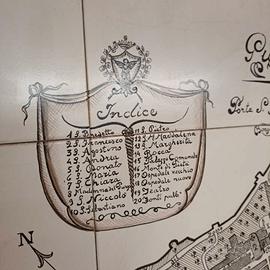 Indice
1 S. Benedetto
2 S. Francesco
3 S. Agostino
4 S. Andrea
5 S. Donato
6 S. Maria
7 S. Chiara
8 Madonna del
9 S. Niccolò
10 S. Sebastiano
11 S. Pietro
12 S. M. Maddalena
13 S. Margherita
14 S. Rocco
15 Palazzo Comunale
16 Monte di Pietà
17 Ospedale vecchio
18 Ospedale nuovo
19 Teatro
20 Fonti pubb.
Porta S.
N